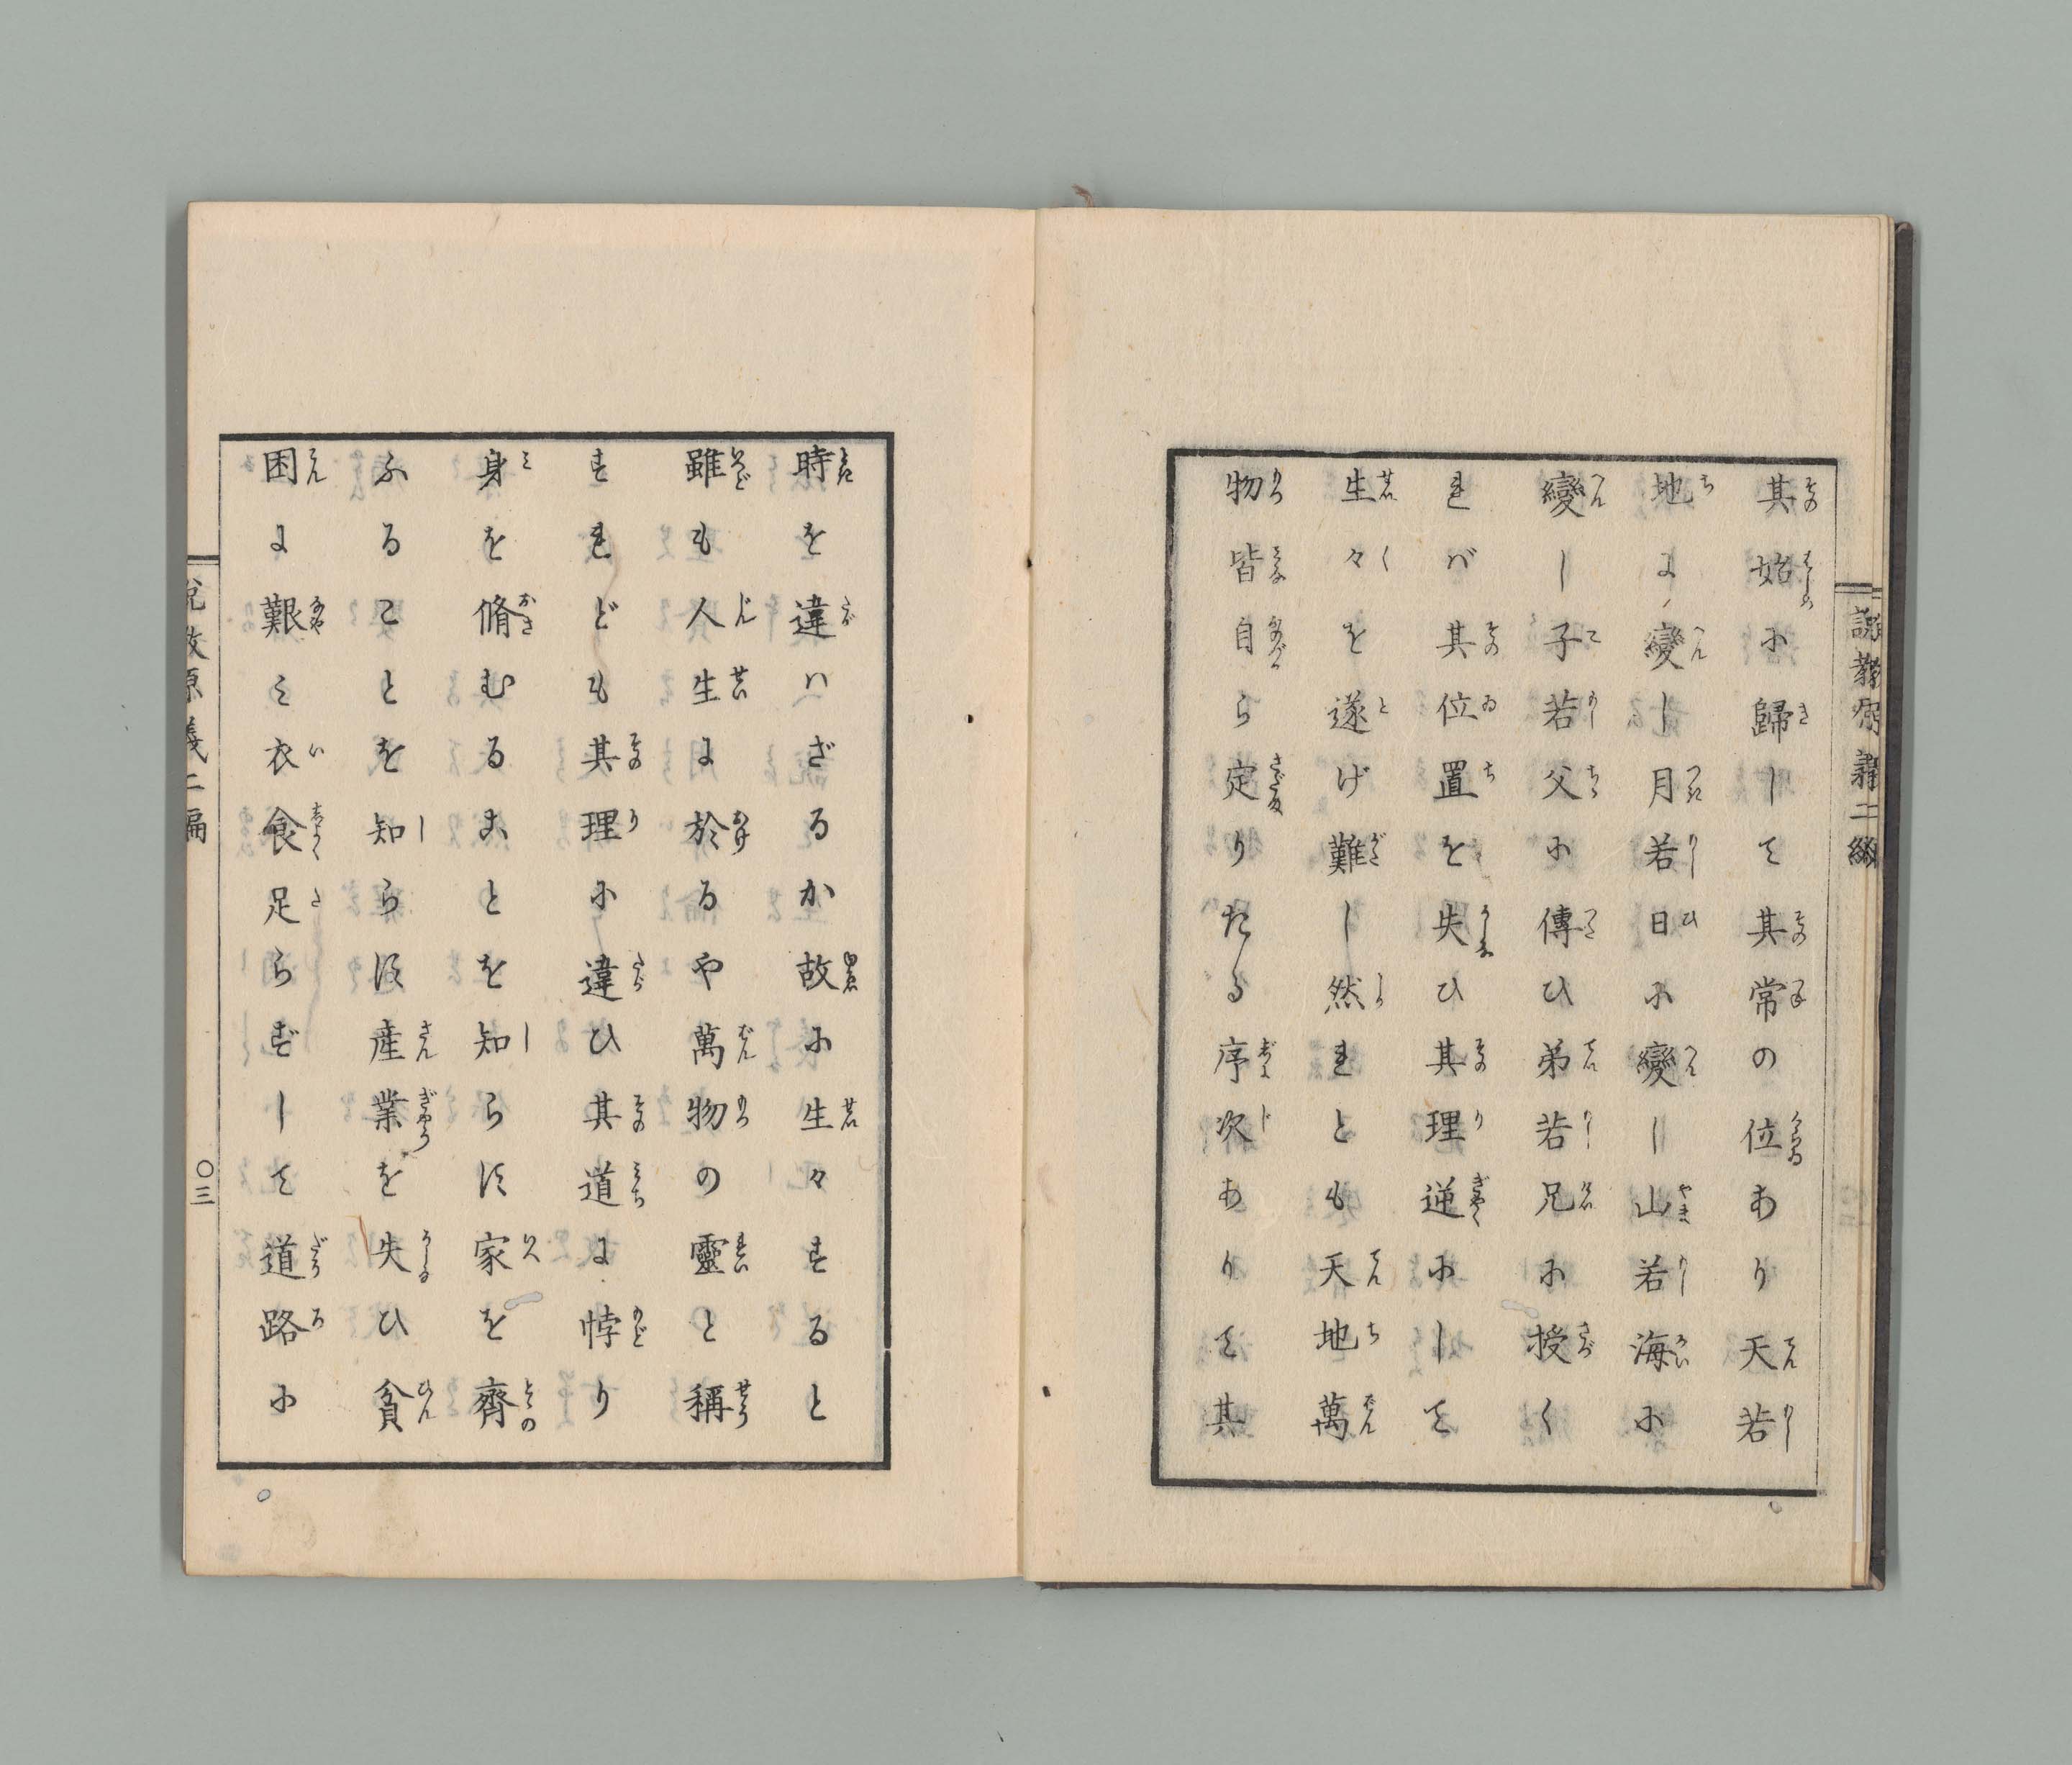 其始に歸して其常の位あり天若
地に變し月若日に變し山若海に
變し子若父に傳ひ弟若兄に授く
れば其位置を失ひ其理逆にして
生々を遂げ難し然れとも天地萬
物皆自ら定りたる序次ありて其
時を違ハざるか故に生々すると
雖も人生に於るや萬物の靈と稱
すれども其理に違ひ其道に悖り
身を脩むることを知らす家を齊
ふることを知らす産業を失ひ貧
困に艱ミ衣食足らずして道路に
説教原義二編
〇三